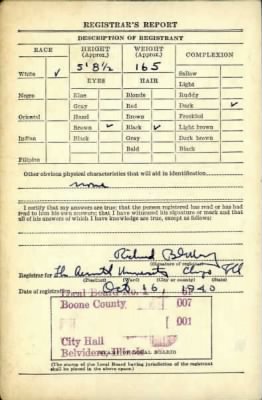 REGISTRAR'S REPORT
DESCRIPTION OF REGISTRANT
RACE HEIGHT (Approx.) WEIGHT (Approx.) COMPLEXION
White ✓ 5' 8½ 165 Sallow
Light
EYES HAIR
Negro Blue Blonde Ruddy
Gray Red Dark ✓
Oriental Hazel Brown Freckled
Brown ✓ Black ✓ Light brown
Indian Black Gray Dark brown
Bald Black
Filipino
Other obvious physical characteristics that will aid in identification
none
I certify that my answers are true; that the person registered has read or has had
read to him his own answers; that I have witnessed his signature or mark and that
all of his answers of which I have knowledge are true, except as follows:
Richard
(Signature of registrar)
Registrar for
(Precinct) (Ward) (City or county) (State)
Date of registration Oct 16, 1940
Local Board No. 1
Boone County 007
001
City Hall
Belvidere, Illinois
(STAMP OF LOCAL BOARD)
(The stamp of the Local Board having jurisdiction of the registrant
shall be placed in the above space.)